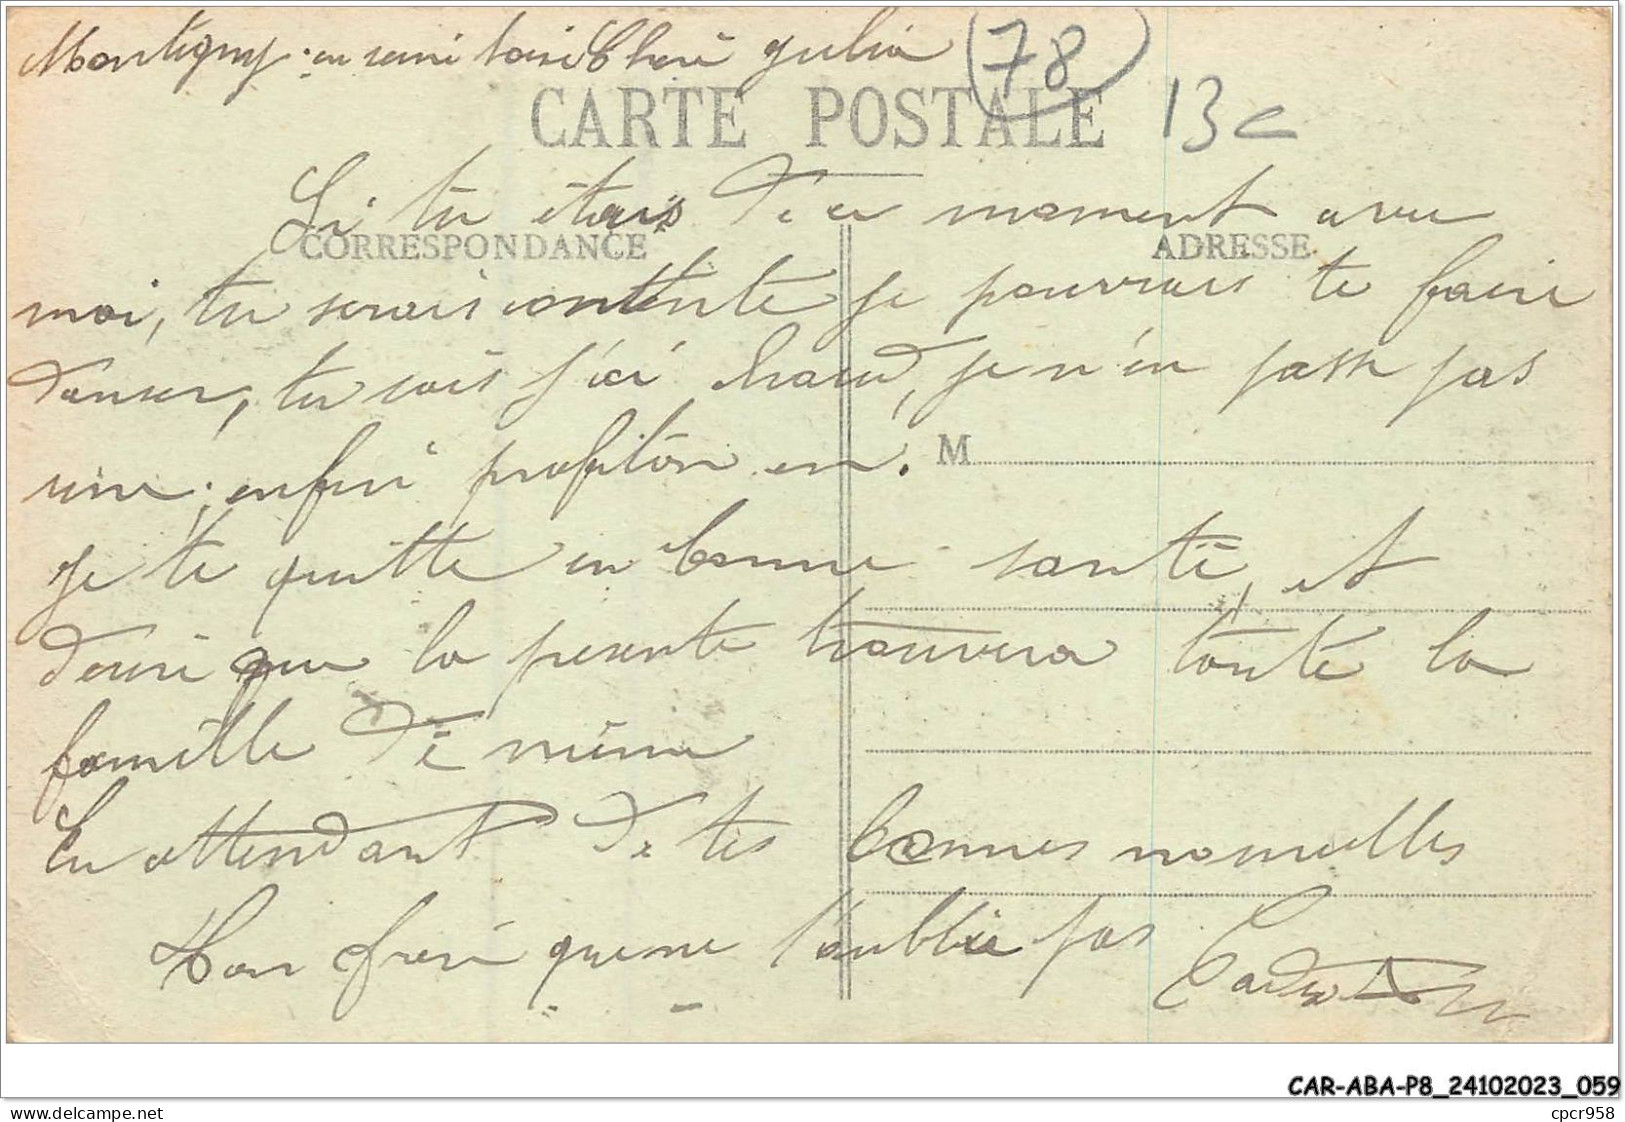 Montigny en seine loire Cheri Julia
(78)
13 c
CARTE POSTALE
Si tu étais d'ici moment avec
CORRESPONDANCE
ADRESSE
moi, tu serais contente je pourrais te faire
danser, tu sais j'ai chaud, je n'en passe pas
une, enfin profiton en.
M
je te quitte en bonne santé, et
desire que la présente trouvera toute la
famille de même
En attendant de tes bonnes nouvelles
Ton frere que ne t'oublie pas
CAR-ABA-P8_24102023_059
www.delcampe.net
cpcr958